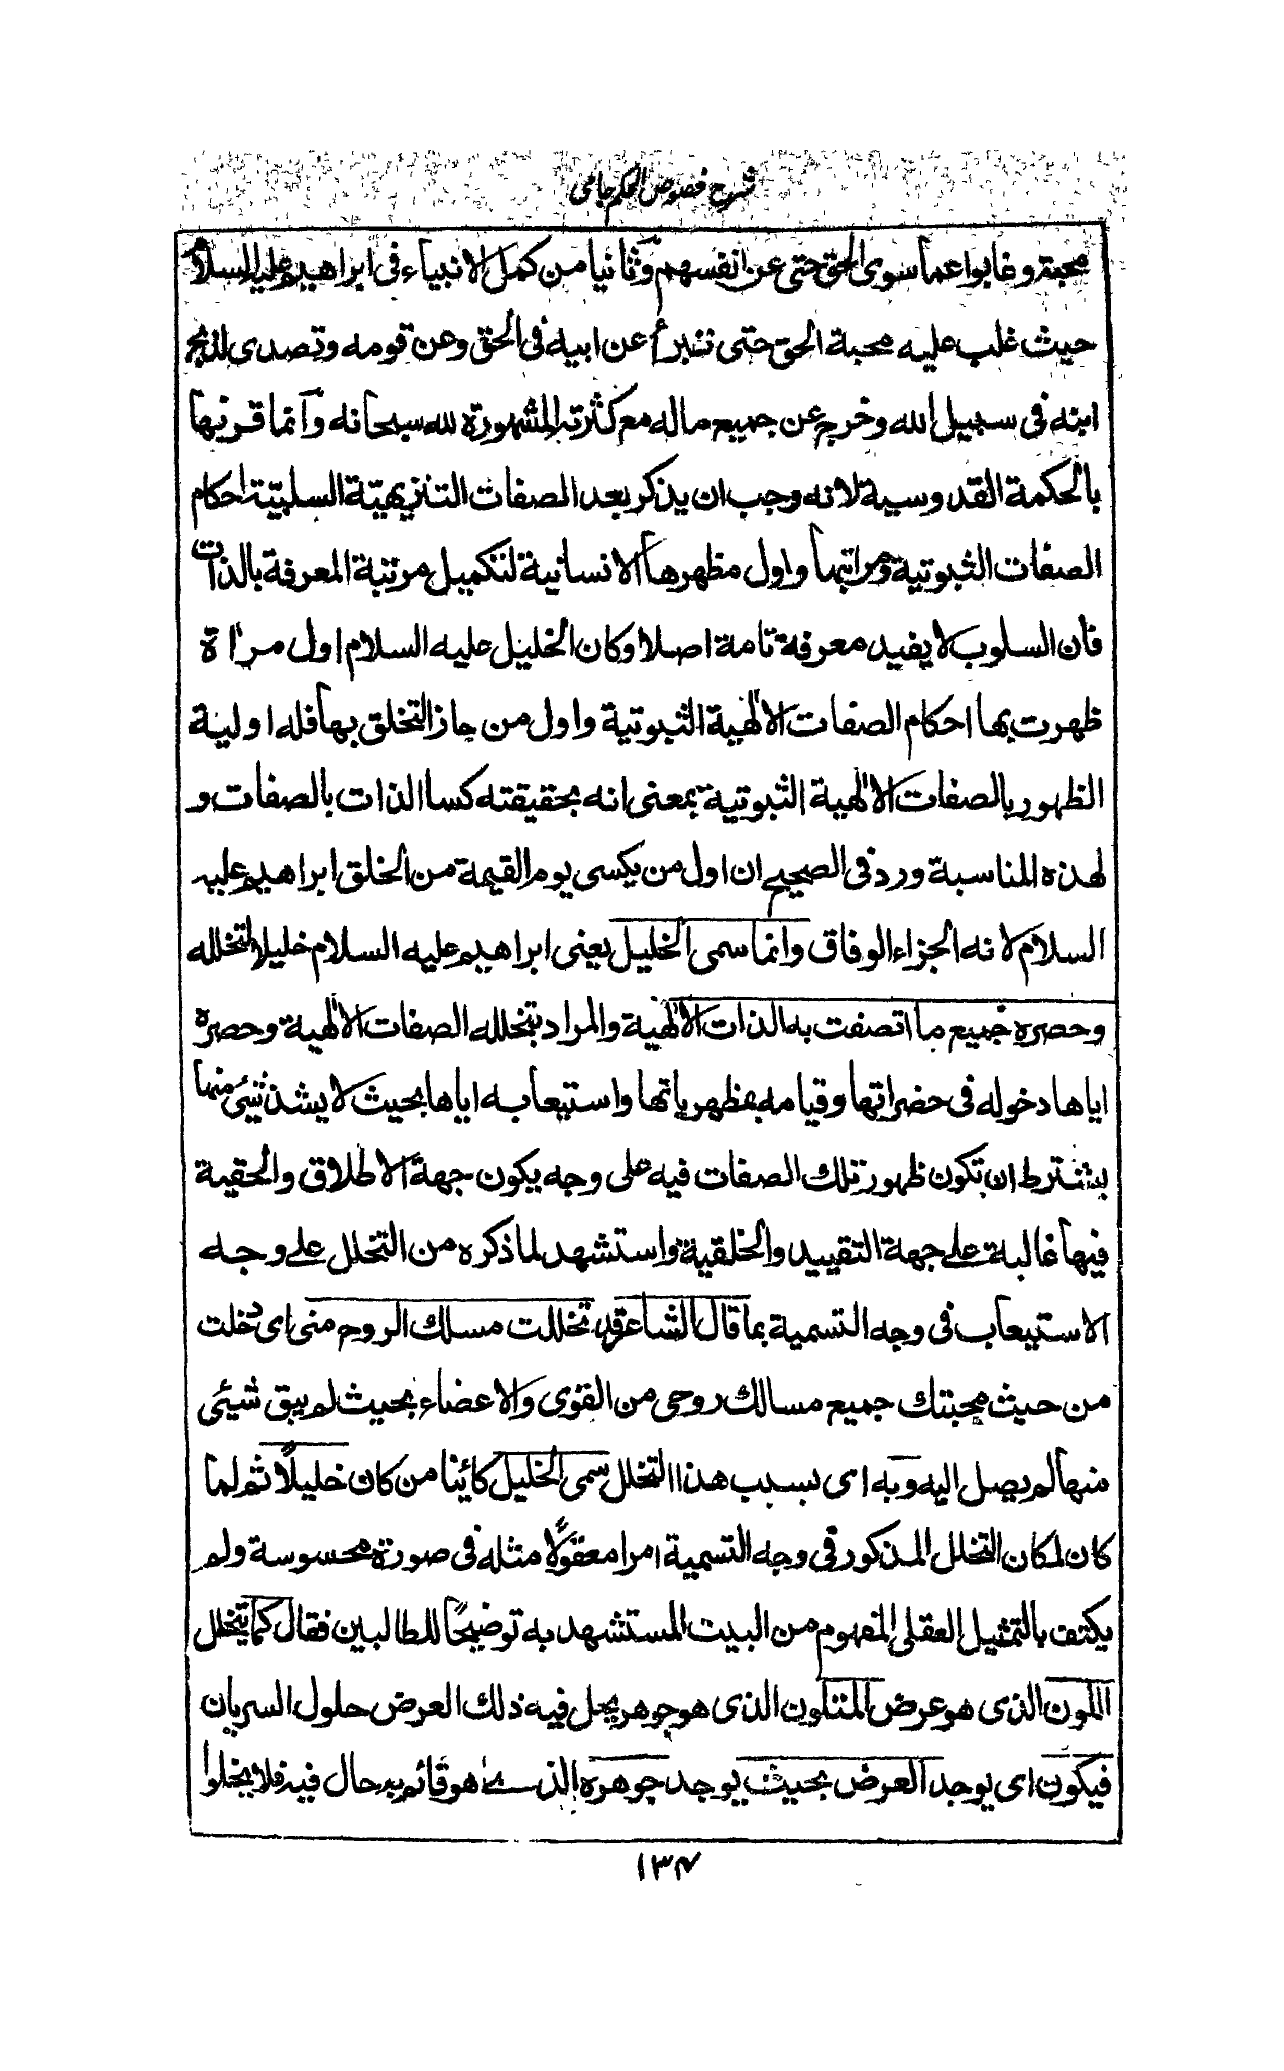 شرح فصوص الحكم جامى
محبته وغابوا عما سوى الحق حتى عن انفسهم وثانيا من كمل الانبياء فى ابراهيم عليه السلام
حيث غلب عليه محبة الحق حتى تبرأ عن ابيه فى الحق وعن قومه وتصدى لذبح
ابنه فى سبيل الله وخرج عن جميع ماله مع كثرته المشهورة لله سبحانه وانما قرنها
بالحكمة القدوسية لانه وجب ان يذكر بعد الصفات التنزيهية السلبية احكام
الصفات الثبوتية ومراتبها واول مظهرها الانسانية لتكميل مرتبة المعرفة بالذات
فان السلوب لا يفيد معرفة تامة اصلا وكان الخليل عليه السلام اول مراة
ظهرت بها احكام الصفات الالهية الثبوتية واول من جاز التخلق بها فله اولية
الظهور بالصفات الالهية الثبوتية بمعنى انه بحقيقته كسا الذات بالصفات و
لهذه المناسبة ورد فى الصحيح ان اول من يكسى يوم القيمة من الخلق ابراهيم عليه
السلام لانه الجزاء الوفاق وانما سمى الخليل يعنى ابراهيم عليه السلام خليلا لتخلله
وحصره جميع ما اتصفت به الذات الالهية والمراد بتخلله الصفات الالهية وحصره
اياها دخوله فى حضراتها وقيامه بمظهرياتها واستيعابه اياها بحيث لا يشذ شئ منها
بشترط ان تكون ظهور تلك الصفات فيه على وجه يكون جهة الاطلاق والحقية
فيها غالبة على جهة التقييد والخلقية واستشهد لما ذكره من التخلل على وجه
الاستيعاب فى وجه التسمية بما قال الشاعر قد تخللت مسلك الروح منى اى دخلت
من حيث محبتك جميع مسالك روحى من القوى والاعضاء بحيث لم يبق شيئى
منها لم يصل اليه وبه اى بسبب هذا التخلل سمى الخليل كائنا من كان خليلاً ثم لما
كان لمكان التخلل المذكور فى وجه التسمية امرا معقولاً مثله فى صورة محسوسة ولم
يكتف بالتمثيل العقلى المفهوم من البيت المستشهد به توضيحاً للطالبين فقال كما يتخلل
اللون الذى هو عرض المتلون الذى هو جوهر يحل فيه ذلك العرض حلول السريان
فيكون اى يوجد العرض بحيث يوجد جوهره الذى هو قائم به حال فيه فلا يخلوا
۱۳۴